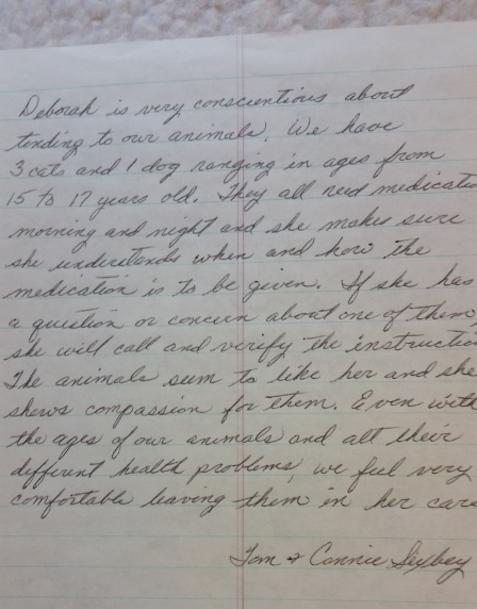 Deborah is very conscientious about
tending to our animals. We have
3 cats and 1 dog ranging in ages from
15 to 17 years old. They all need medicatio
morning and night and she makes sure
she understands when and how the
medication is to be given. If she has
a question or concern about one of them,
she will call and verify the instructio
The animals seem to like her and she
shows compassion for them. Even with
the ages of our animals and all their
different health problems, we feel very
comfortable leaving them in her care
Tom & Connie